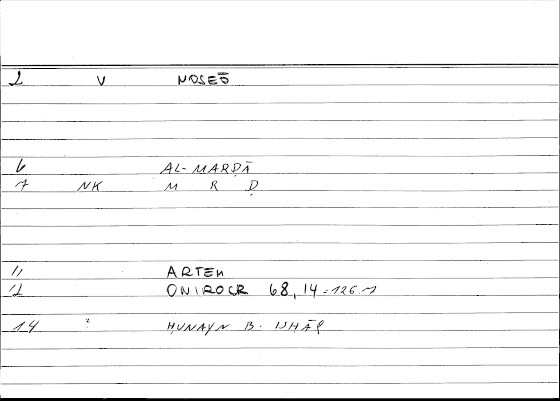 2 V NOSEŌ
6 AL-MARḌĀ
7 NK M R Ḍ
11 ARTEM
12 ONIROCR 68, 14 = 126.7
14 ḤUNAYN B. ISḤĀQ